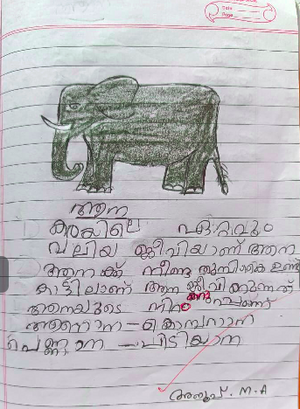 Date
Page
ആന
കരയിലെ ഏറ്റവും
വലിയ ജീവിയാണ് ആന
ആനക്ക് നീണ്ട തുമ്പിക്കൈ ഉണ്ട്
കാട്ടിലാണ് ആന ജീവിക്കുന്നത്
ആനയുടെ നിറം കറുപ്പാണ്
ആണാന - കൊമ്പനാന
പെണ്ണാന - പിടിയാന
M.A